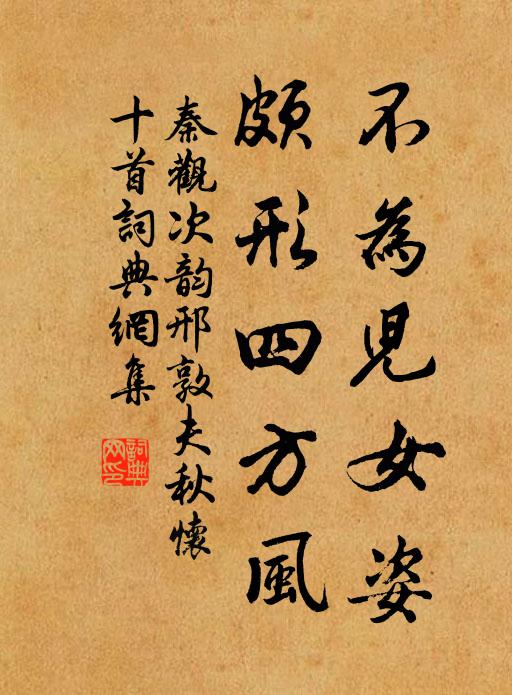 不為兒女姿
頗形四方風
秦觀次韵邢敦夫秋懷
十首詞典網集
詞典網印